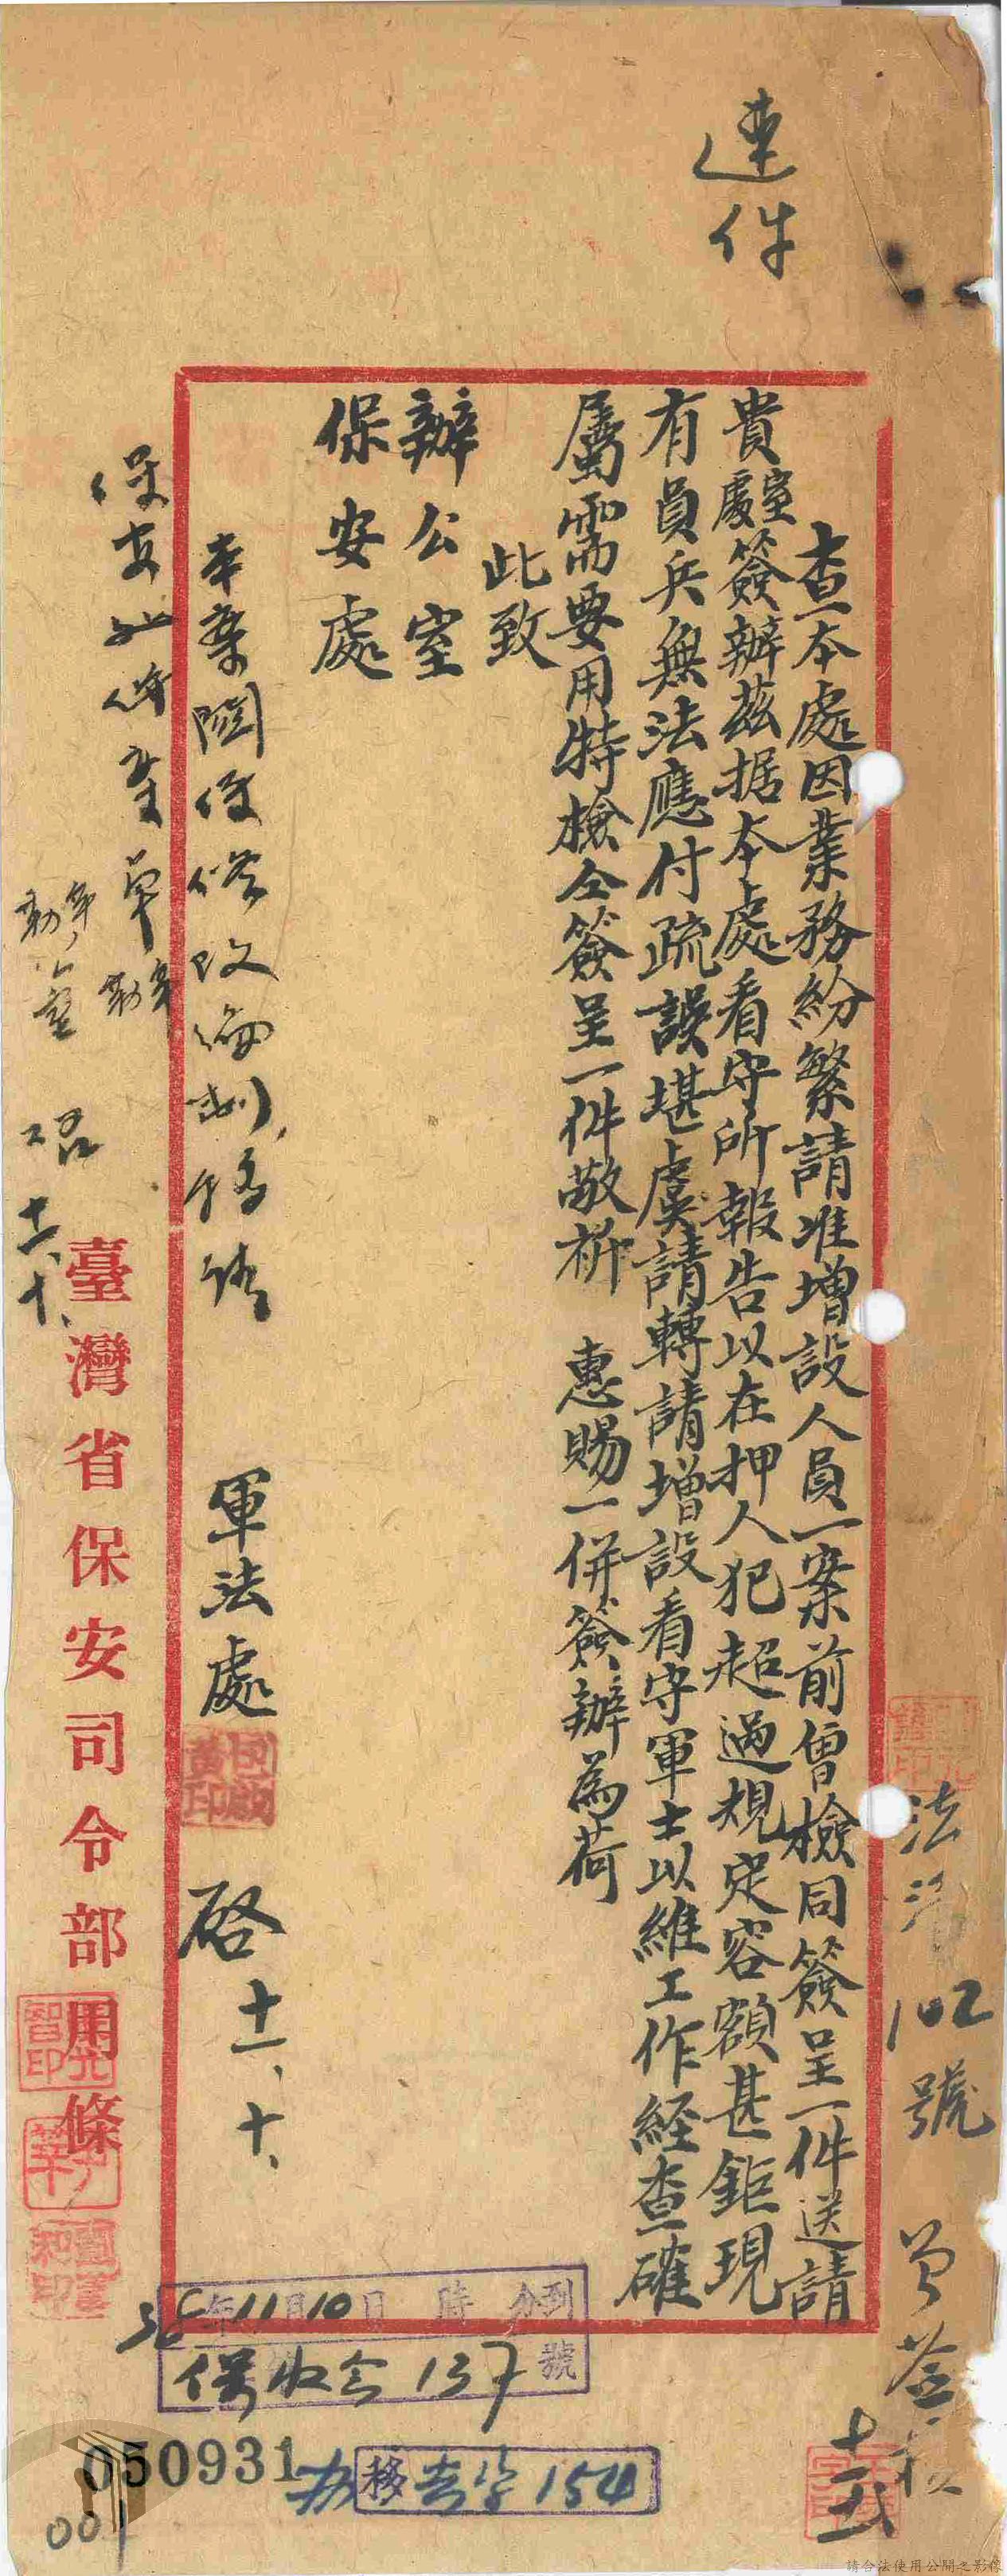 速件
法清102號
查本處因業務紛繁請准增設人員一案前曾檢同簽呈一件送請
貴室處簽辦茲据本處看守所報告以在押人犯超過規定容額甚鉅現
有員兵無法應付疏誤堪虞請轉請增設看守軍士以維工作經查確
屬需要用特檢仝簽呈一件敬祈 惠賜一併簽辦為荷
此致
辦公室
保安處
軍法處 啓 十一、十、
臺灣省保安司令部用條
36年11月10日 時 分到
保收 137號
移 字154
050931
001
請合法使用公開之影像